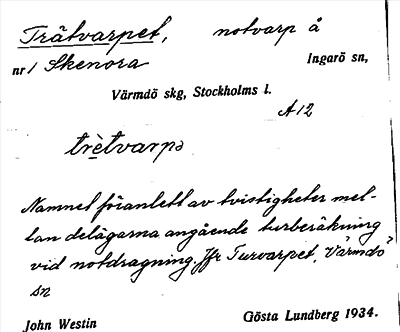 Trätvarpet, notvarp å
nr 1 Skenora Ingarö sn,
Värmdö skg, Stockholms l.
A 12
trètvarpə
Namnet föranlett av tvistigheter mel-
lan delägarna angående turberäkning
vid notdragning. Jfr Turvarpet, Värmdö
sn
John Westin Gösta Lundberg 1934.